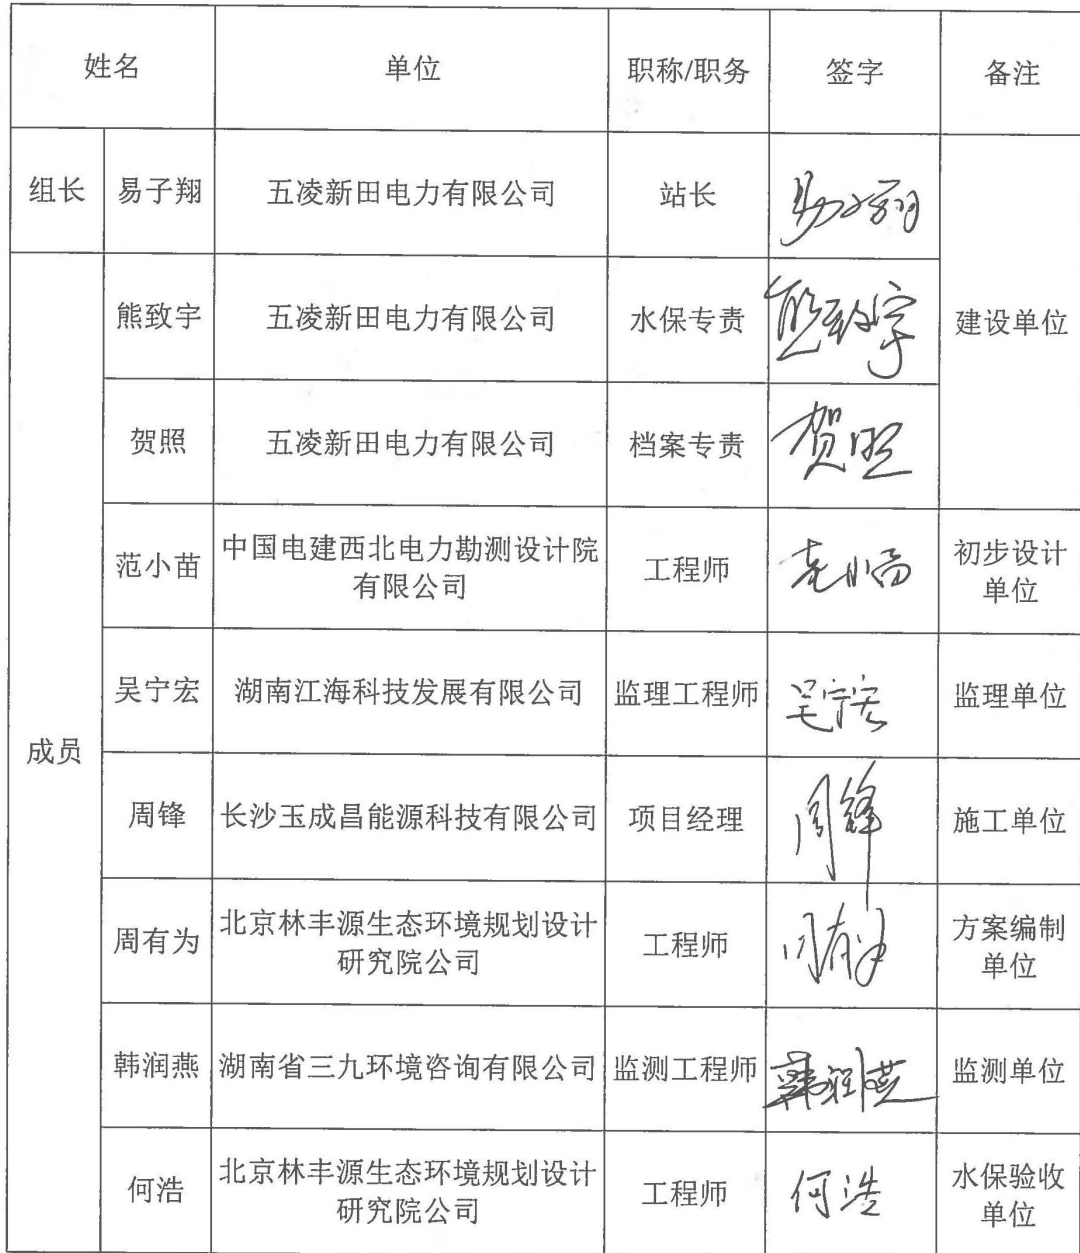 姓名 单位 职称/职务 签字 备注
组长 易子翔 五凌新田电力有限公司 站长 易子翔
熊致宇 五凌新田电力有限公司 水保专责 熊致宇 建设单位
贺照 五凌新田电力有限公司 档案专责 贺照
范小苗 中国电建西北电力勘测设计院
有限公司 工程师 范小苗 初步设计
单位
吴宁宏 湖南江海科技发展有限公司 监理工程师 吴宁宏 监理单位
成员
周锋 长沙玉成昌能源科技有限公司 项目经理 周锋 施工单位
周有为 北京林丰源生态环境规划设计
研究院公司 工程师 周有为 方案编制
单位
韩润燕 湖南省三九环境咨询有限公司 监测工程师 韩润燕 监测单位
何浩 北京林丰源生态环境规划设计
研究院公司 工程师 何浩 水保验收
单位